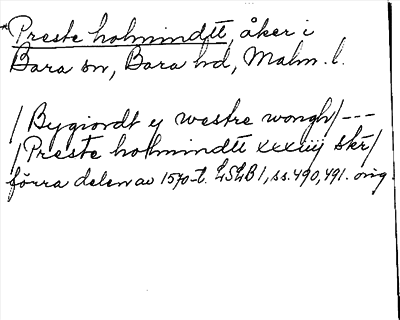 *Preste holmindtt, åker i
Bara sn, Bara hd, Malm. l.
/Bygiordt ej westre wongh/---
/Preste holmindtt xxxiiij skr/
förra delen av 1570-t. LSLB 1, ss. 490, 491. orig.